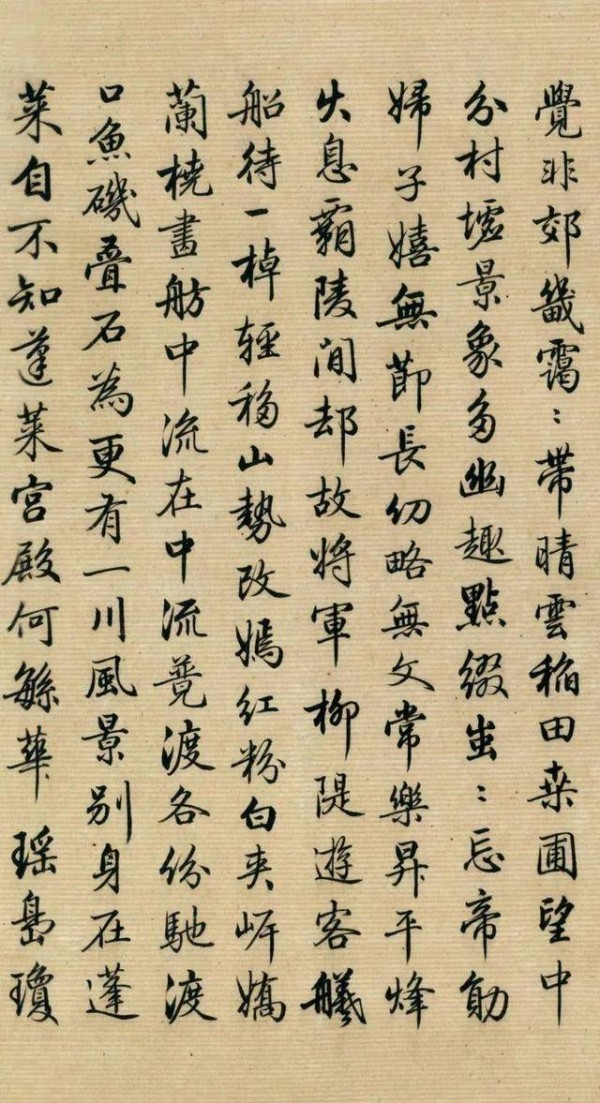 覺非郊畿靄〻帶晴雲稻田桒圃望中
分村墟景象多幽趣點綴蚩〻忘帝勛
婦子嬉無節長幼略無文常樂昇平烽
火息霸陵閒却故將軍柳隄遊客艤
船待一棹輕移山勢改嫣紅粉白夾岸嬌
蘭橈畫舫中流在中流競渡各紛馳渡
口魚磯疊石為更有一川風景別身在蓬
萊自不知蓬萊宮殿何緐華瑤島瓊